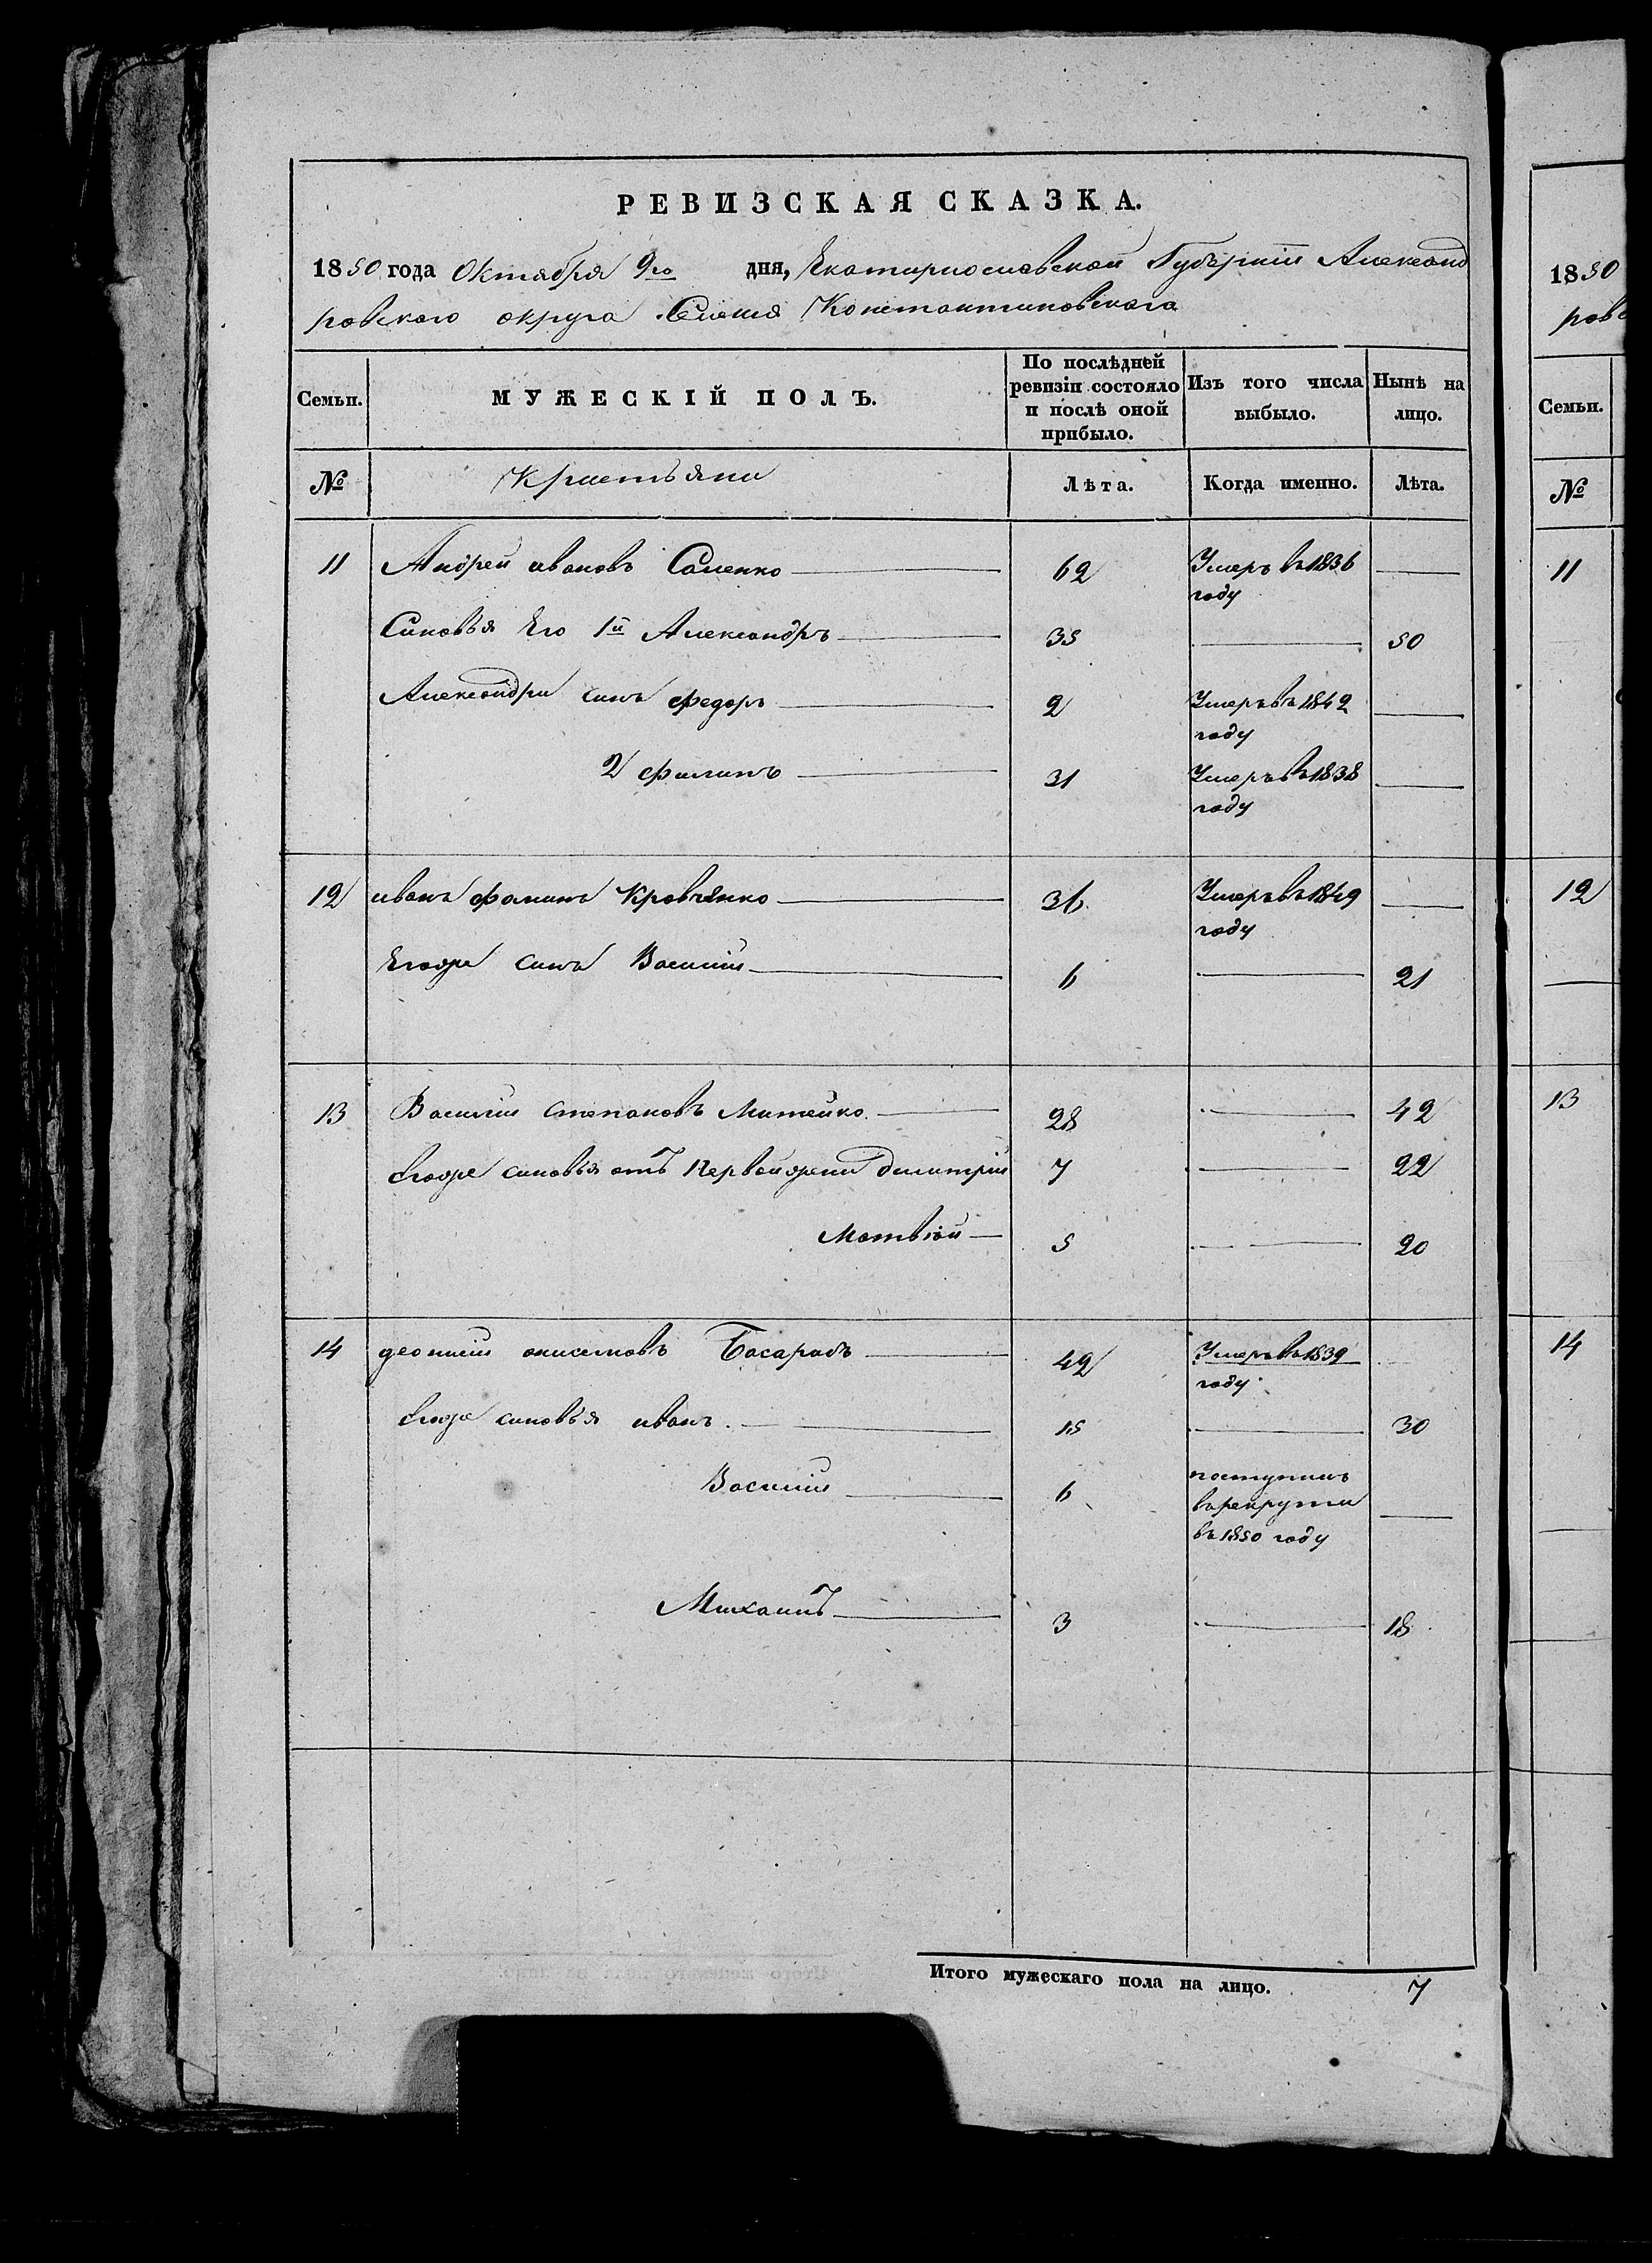 РЕВИЗСКАЯ СКАЗКА.
1850 года Октября 9го дня, Екатириославской Губерніи Александ
ровскаго округа Селенія Константиновскаго
Семьи. МУЖЕСКІЙ ПОЛЪ. По послѣдней ревизіи состояло и послѣ оной прибыло. Изъ того числа выбыло. Нынѣ на лицо.
№ Кристьяни Лѣта. Когда именно. Лѣта.
11 Андрей ивановъ Саленко 62 Умеръ въ 1836
году
Синовья Его 1й Александръ 35 50
Александри синъ Федоръ 2 Умеръ въ 1842
году
2 Филипъ 31 Умеръ въ 1838
году
12 иванъ Фоминъ Кровченко 36 Умеръ въ 1849
году
Егоже синъ Василій 6 21
13 Василій степановъ Митейко 28 42
Егоже синовья отъ Первой жени Димитрій 7 22
Матвіой 5 20
14 деонисій онисимовъ Басарабъ 42 Умеръ въ 1839
году
Егоже синовья иванъ 15 30
Василій 6 поступилъ
врекрути
въ 1850 году
Михаилъ 3 18
Итого мужескаго пола на лицо. 7
1850
рово
Семьи.
№
11
12
13
14